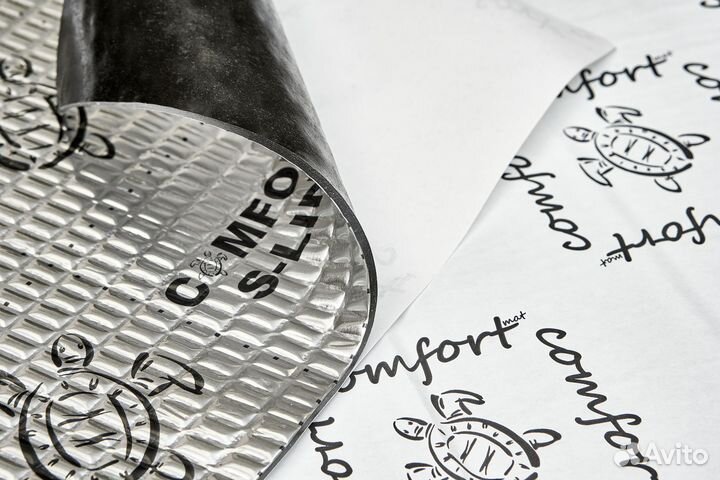 comfort mat
comfort
comfort mat
COMFO
S-LI
comfort mat
comfort
Avito